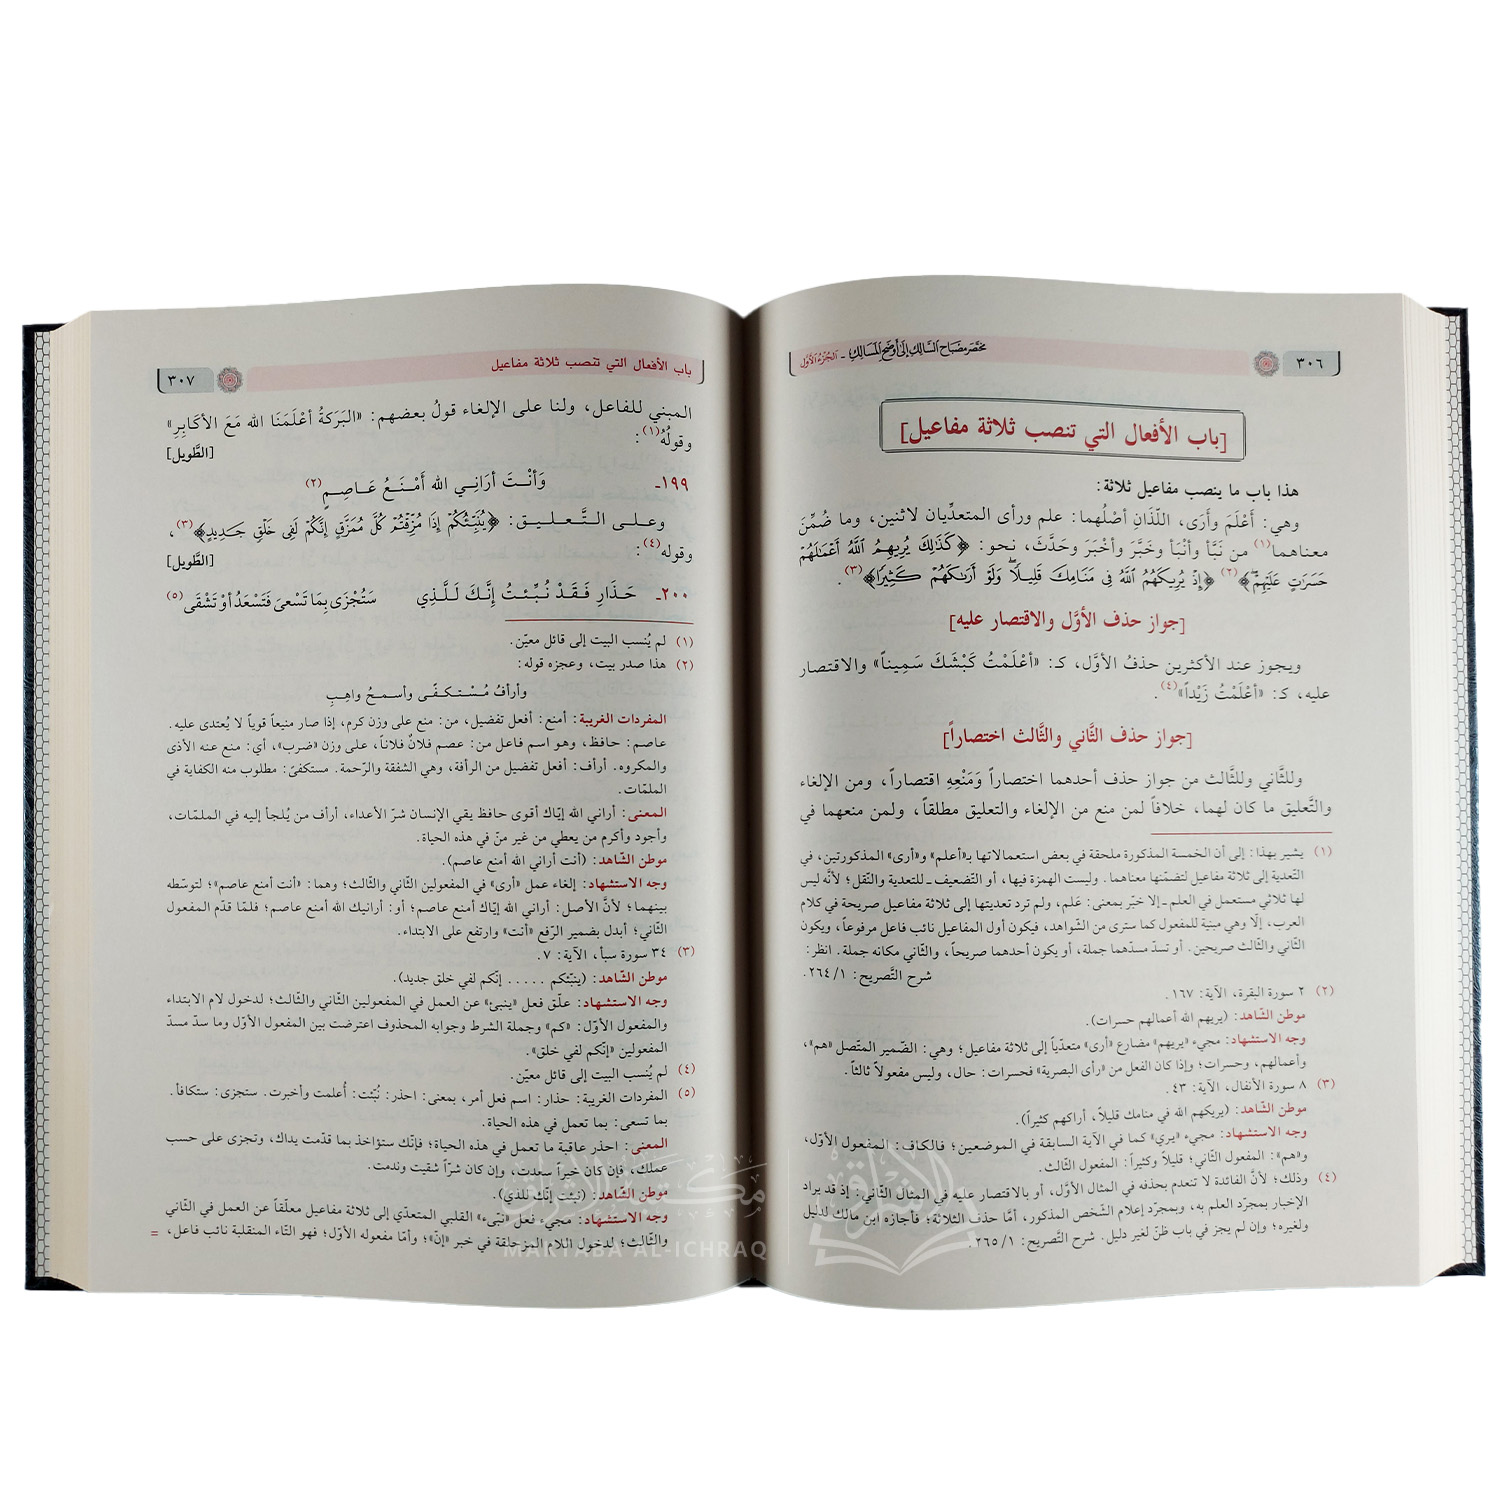 ٣٠٦
مختصر مصباح السالك إلى أوضح المسالك - الجزء الأول
[باب الأفعال التي تنصب ثلاثة مفاعيل]
هذا باب ما ينصب مفاعيل ثلاثة:
وهي: أَعْلَمَ وأَرَى، اللّذَانِ أصْلُهما: علم ورأى المتعدِّيان لاثنين، وما ضُمِّنَ
معناهما(١) من نَبَّأ وأنْبَأ وخَبَّرَ وأخْبَرَ وحَدَّثَ، نحو: ﴿كَذَٰلِكَ يُرِيهِمُ ٱللَّهُ أَعْمَٰلَهُمْ
حَسَرَٰتٍ عَلَيْهِمْ﴾(٢) ﴿إِذْ يُرِيكَهُمُ ٱللَّهُ فِى مَنَامِكَ قَلِيلًا ۖ وَلَوْ أَرَىٰكَهُمْ كَثِيرًا﴾(٣).
[جواز حذف الأوَّل والاقتصار عليه]
ويجوز عند الأكثرين حذفُ الأوّل، كـ: «أعْلَمْتُ كَبْشَكَ سَمِيناً» والاقتصار
عليه، كـ: «أعْلَمْتُ زَيْداً»(٤).
[جواز حذف الثَّاني والثَّالث اختصاراً]
وللثَّاني وللثَّالث من جواز حذف أحدهما اختصاراً وَمَنْعِهِ اقتصاراً، ومن الإلغاء
والتَّعليق ما كان لهما، خلافاً لمن منع من الإلغاء والتعليق مطلقاً، ولمن منعهما في
(١) يشير بهذا: إلى أن الخمسة المذكورة ملحقة في بعض استعمالاتها بـ«أعلم» و«أرى» المذكورتين، في
التّعدية إلى ثلاثة مفاعيل لتضمّنها معناهما. وليست الهمزة فيها، أو التّضعيف ـ للتعدية والنّقل؛ لأنّه ليس
لها ثلاثي مستعمل في العلم ـ إلا خبّر بمعنى: عَلم، ولم ترد تعديتها إلى ثلاثة مفاعيل صريحة في كلام
العرب، إلّا وهي مبنية للمفعول كما سترى من الشّواهد، فيكون أول المفاعيل نائب فاعل مرفوعاً، ويكون
الثّاني والثّالث صريحين. أو تسدّ مسدّهما جملة، أو يكون أحدهما صريحاً، والثّاني مكانه جملة. انظر:
شرح التَّصريح: ٢٦٤/١.
(٢) ٢ سورة البقرة، الآية: ١٦٧.
موطن الشّاهد: (يريهم الله أعمالهم حسرات).
وجه الاستشهاد: مجيء «يريهم» مضارع «أرى» متعدّياً إلى ثلاثة مفاعيل؛ وهي: الضّمير المتّصل «هم»،
وأعمالهم، وحسرات؛ وإذا كان الفعل من «رأى البصرية» فحسرات: حال، وليس مفعولاً ثالثاً.
(٣) ٨ سورة الأنفال، الآية: ٤٣.
موطن الشّاهد: (يريكهم الله في منامك قليلاً، أراكهم كثيراً).
وجه الاستشهاد: مجيء «يري» كما في الآية السابقة في الموضعين؛ فالكاف: المفعول الأوّل،
و«هم»: المفعول الثّاني؛ قليلاً وكثيراً: المفعول الثّالث.
(٤) وذلك؛ لأنّ الفائدة لا تنعدم بحذفه في المثال الأوَّل، أو بالاقتصار عليه في المثال الثّاني: إذ قد يراد
الإخبار بمجرّد العلم به، وبمجرّد إعلام الشّخص المذكور، أمّا حذف الثّلاثة؛ فأجازه ابن مالك لدليل
ولغيره؛ وإن لم يجز في باب ظنّ لغير دليل. شرح التَّصريح: ٢٦٥/١.
باب الأفعال التي تنصب ثلاثة مفاعيل
٣٠٧
المبني للفاعل، ولنا على الإلغاء قولُ بعضهم: «البَرَكةُ أعْلَمَنَا الله مَعَ الأكَابِرِ»
وقولُهُ(١): [الطَّويل]
١٩٩ـ وَأنْتَ أرَانِي الله أَمْنَعُ عَاصِمٍ(٢)
وعلى التَّعليق: ﴿يُنَبِّئُكُمْ إِذَا مُزِّقْتُمْ كُلَّ مُمَزَّقٍ إِنَّكُمْ لَفِى خَلْقٍ جَدِيدٍ﴾(٣)،
وقوله(٤): [الطَّويل]
٢٠٠ـ حَذَارِ فَقَدْ نُبِّئتُ إنَّكَ لَلَّذِي سَتُجْزَى بِمَا تَسْعىَ فَتَسْعَدُ أوْ تَشْقَى(٥)
(١) لم يُنسب البيت إلى قائل معيّن.
(٢) هذا صدر بيت، وعجزه قوله:
وأرأفُ مُسْتكفًى وأسمحُ واهِبِ
المفردات الغريبة: أمنع: أفعل تفضيل، من: منع على وزن كرم، إذا صار منيعاً قوياً لا يُعتدى عليه.
عاصم: حافظ، وهو اسم فاعل من: عصم فلانٌ فلاناً، على وزن «ضرب»، أي: منع عنه الأذى
والمكروه. أرأف: أفعل تفضيل من الرأفة، وهي الشفقة والرّحمة. مستكفىً: مطلوب منه الكفاية في
الملمّات.
المعنى: أراني الله إيّاك أقوى حافظ يقي الإنسان شرّ الأعداء، أرأف من يُلجأ إليه في الملمّات،
وأجود وأكرم من يعطي من غير منّ في هذه الحياة.
موطن الشّاهد: (أنت أراني الله أمنع عاصم).
وجه الاستشهاد: إلغاء عمل «أرى» في المفعولين الثّاني والثّالث؛ وهما: «أنت أمنع عاصم»؛ لتوسّطه
بينهما؛ لأنّ الأصل: أراني الله إيّاك أمنع عاصم؛ أو: أرانيك الله أمنع عاصم؛ فلمّا قدّم المفعول
الثّاني؛ أبدل بضمير الرّفع «أنت» وارتفع على الابتداء.
(٣) ٣٤ سورة سبأ، الآية: ٧.
موطن الشّاهد: (ينبّئكم ..... إنّكم لفي خلق جديد).
وجه الاستشهاد: علّق فعل «ينبئ» عن العمل في المفعولين الثّاني والثّالث؛ لدخول لام الابتداء
والمفعول الأوّل: «كم» وجملة الشرط وجوابه المحذوف اعترضت بين المفعول الأوّل وما سدّ مسدّ
المفعولين «إنّكم لفي خلق».
(٤) لم يُنسب البيت إلى قائل معيّن.
(٥) المفردات الغريبة: حذار: اسم فعل أمر، بمعنى: احذر: نُبّئت: أُعلمت وأخبرت. ستجزى: ستكافأ.
بما تسعى: بما تعمل في هذه الحياة.
المعنى: احذر عاقبة ما تعمل في هذه الحياة؛ فإنّك ستؤاخذ بما قدّمت يداك، وتجزى على حسب
عملك، فإن كان خيراً سعدت، وإن كان شرّاً شقيت وندمت.
موطن الشّاهد: (نبئت إنّك للذي).
وجه الاستشهاد: مجيء فعل «نبّىء» القلبي المتعدّي إلى ثلاثة مفاعيل معلّقاً عن العمل في الثّاني
والثّالث؛ لدخول اللام المزحلقة في خبر «إنّ»؛ وأمّا مفعوله الأوّل؛ فهو التّاء المنقلبة نائب فاعل، =
مكتبة الإشراق
MAKTABA AL-ICHRAQ